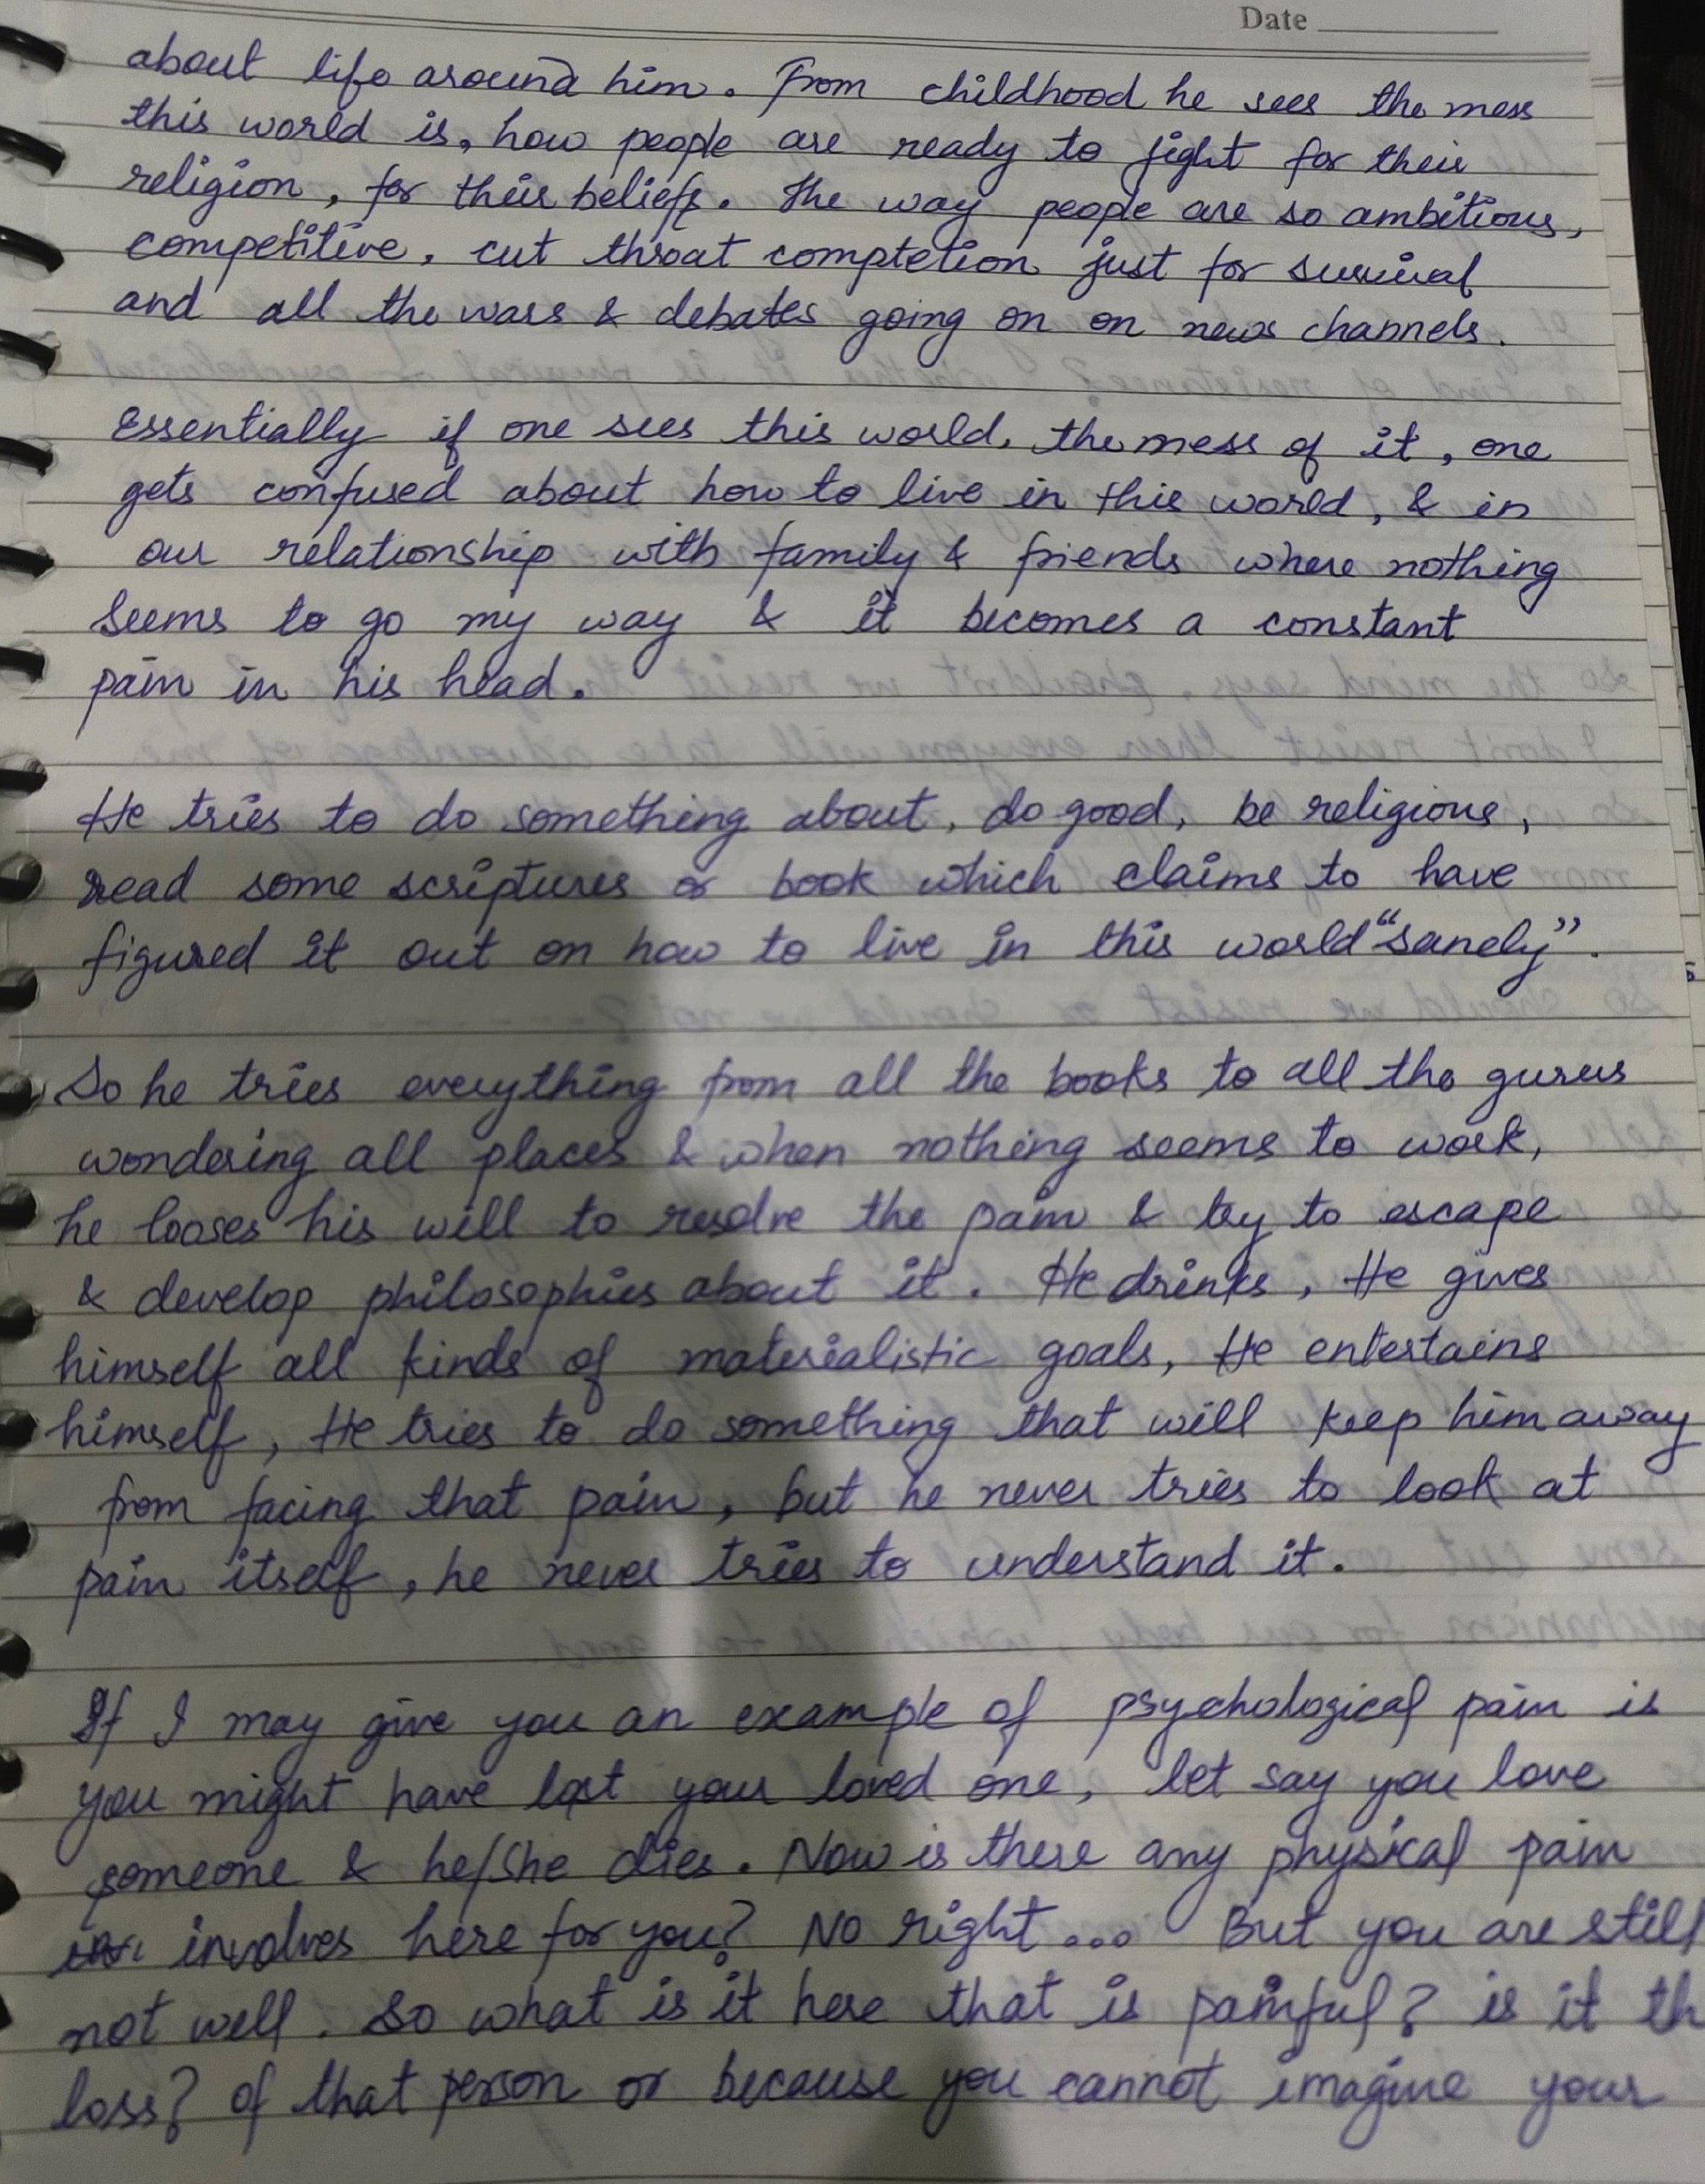 Date
about life around him. From childhood he sees the mess
this world is, how people are ready to fight for their
religion, for their beliefs. The way people are so ambitious,
competitive, cut throat comptetion just for survival
and all the wars & debates going on on news channels.
Essentially if one sees this world, the mess of it, one
gets confused about how to live in this world, & in
our relationship with family & friends where nothing
seems to go my way & it becomes a constant
pain in his head.
He tries to do something about, do good, be religious,
read some scriptures or book which claims to have
figured it out on how to live in this world "sanely".
So he tries everything from all the books to all the gurus
wondering all places & when nothing seems to work,
he looses his will to resolve the pain & try to escape
& develop philosophies about it. He drinks, He gives
himself all kinds of materialistic goals, He entertains
himself, He tries to do something that will keep him away
from facing that pain, but he never tries to look at
pain itself, he never tries to understand it.
If I may give you an example of psychological pain is
you might have lost your loved one, let say you love
someone & he/she dies. Now is there any physical pain
involves here for you? No right... But you are still
not well. So what is it here that is painful? is it th
loss? of that person or because you cannot imagine your